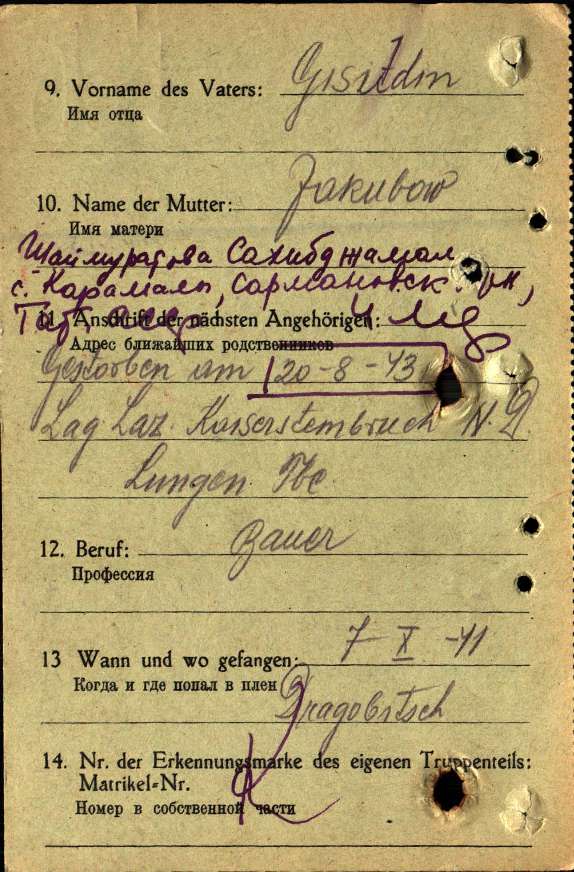 9. Vorname des Vaters: Gisitdin
Имя отца
10. Name der Mutter: Jakubow
Имя матери
Шаймуратова Сахибджамал
с. Карамалы, Сармановск. рн,
Тат АССР
11. Anschrift der nächsten Angehörigen:
Адрес ближайших родственников
Gestorben am 20-8-43
Lag. Laz. Kaisersteinbruch N. D.
Lungen Tbc.
12. Beruf: Bauer
Профессия
13 Wann und wo gefangen: 7 X -41
Когда и где попал в плен
Dragobitsch
14. Nr. der Erkennungsmarke des eigenen Truppenteils:
Matrikel=Nr.
Номер в собственной части